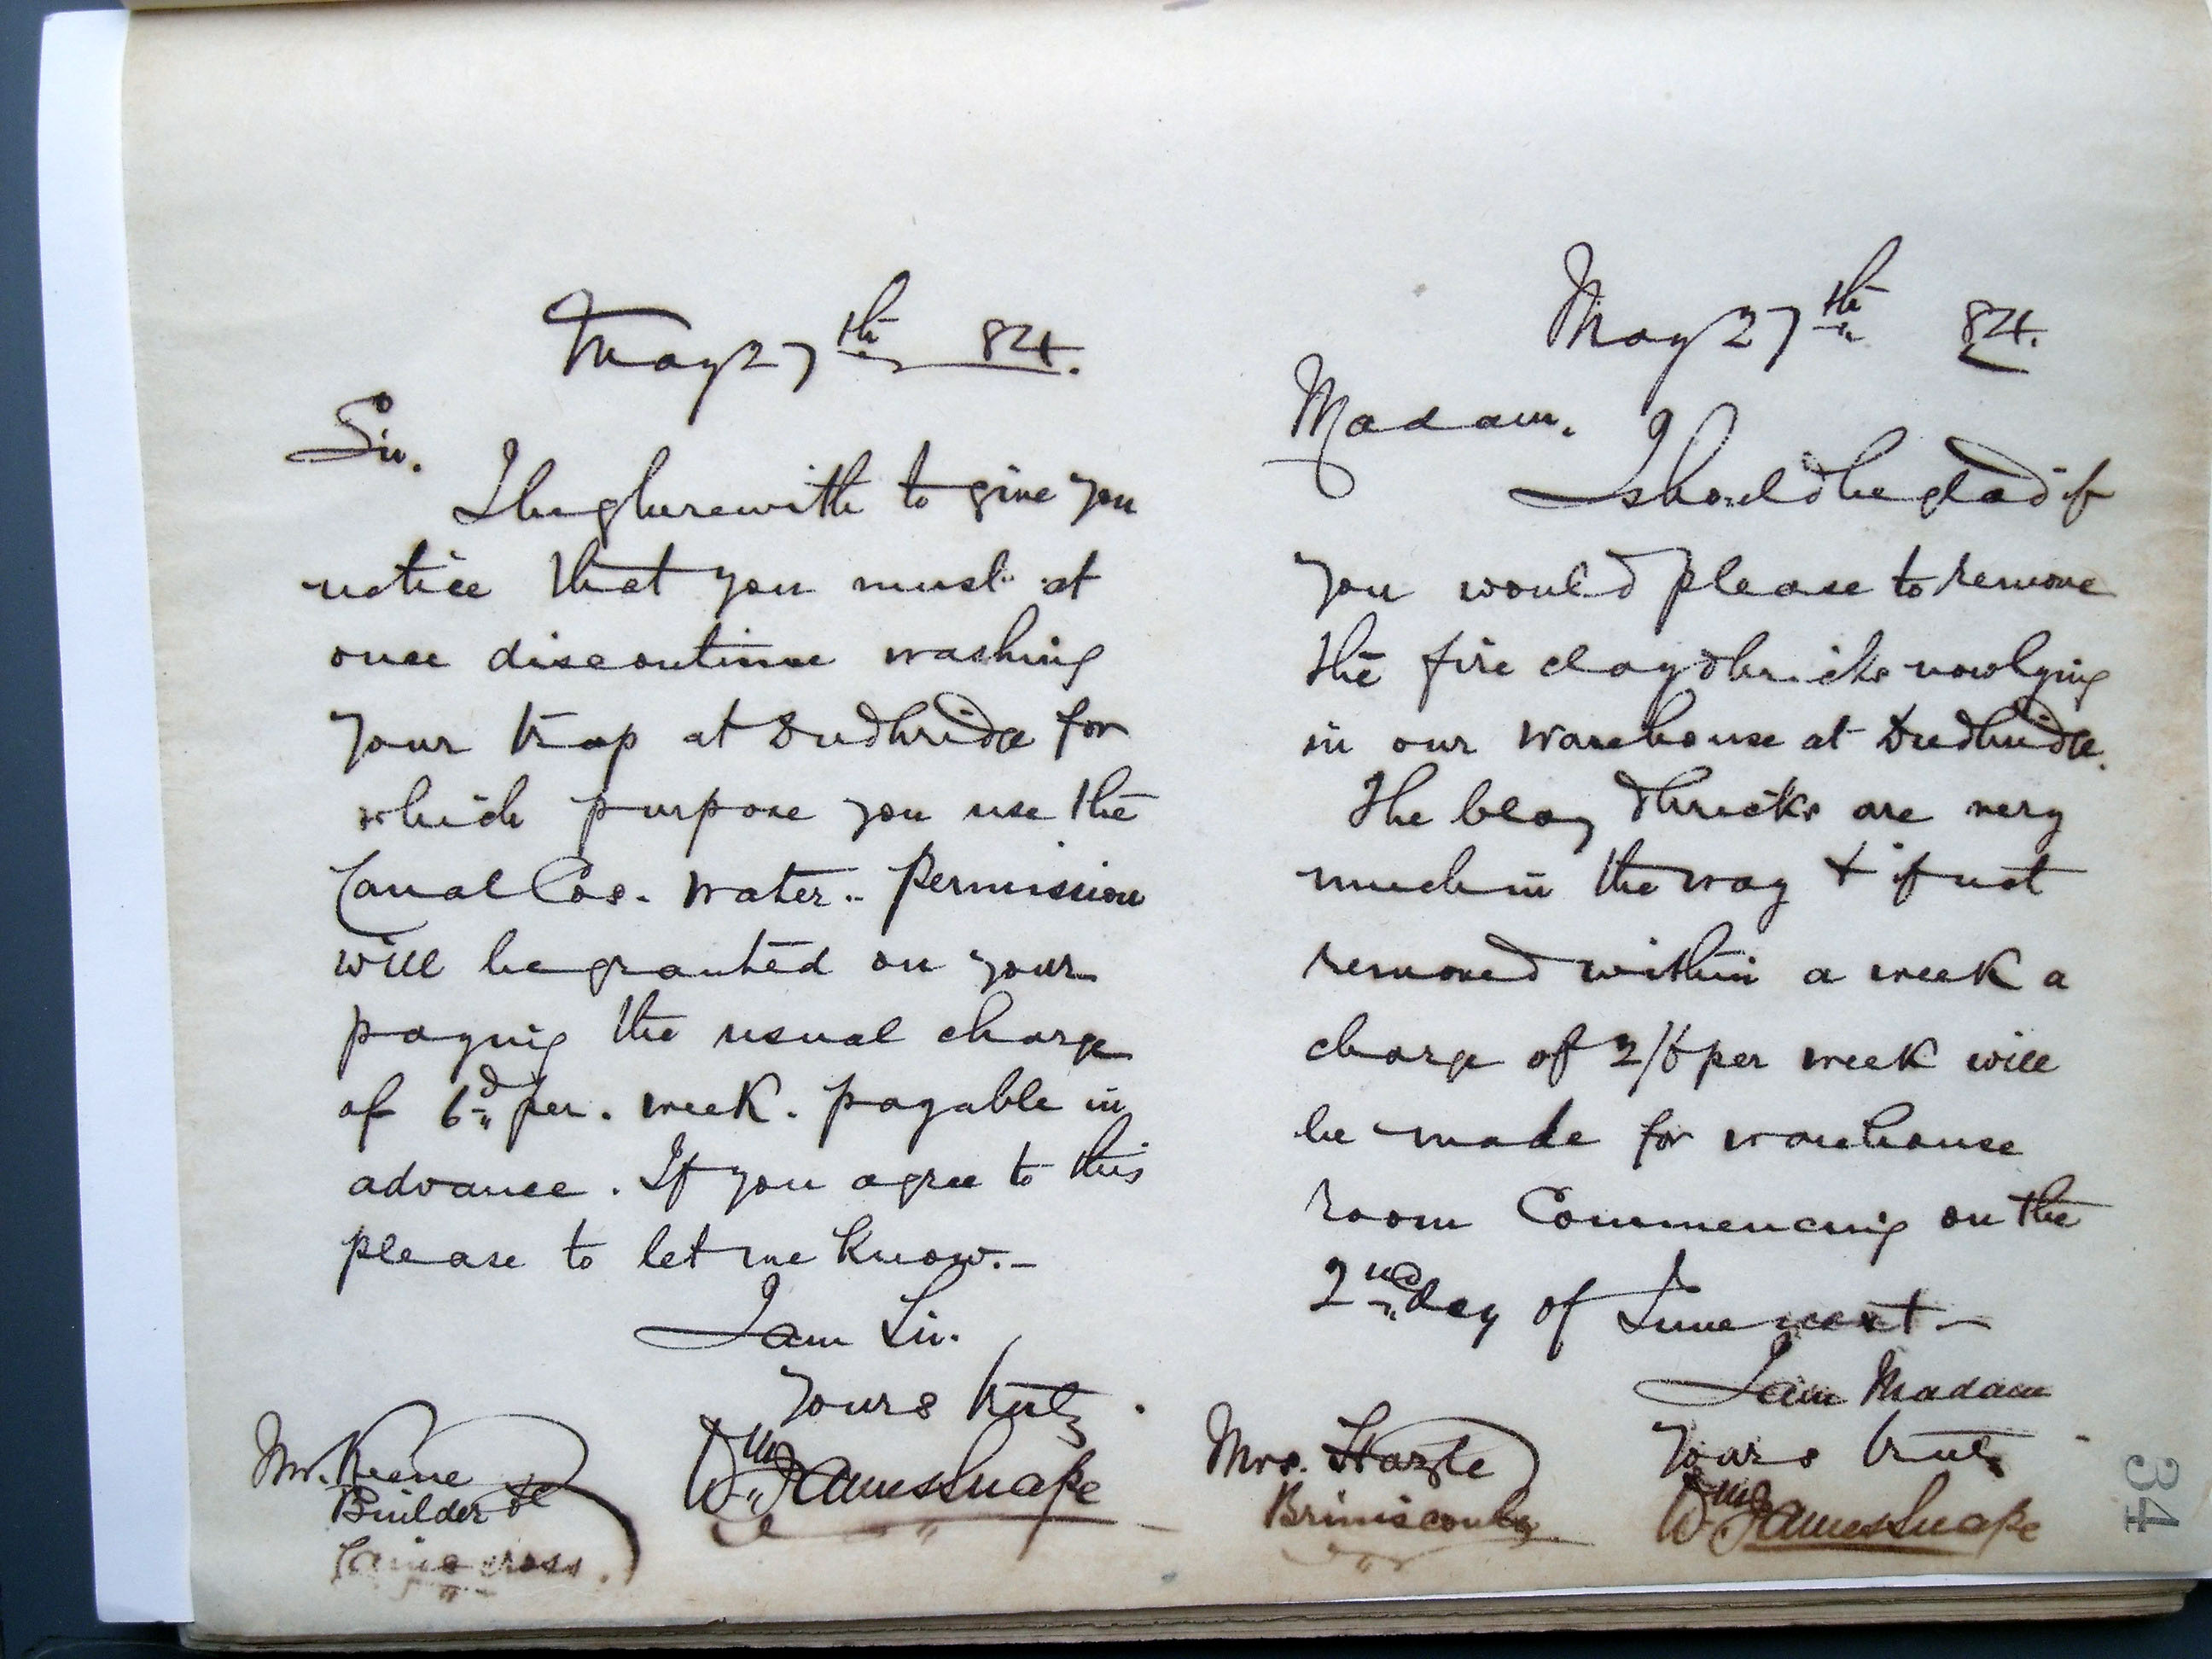 May 27th 84.
Sir.
I beg herewith to give you
notice that you must at
once discontinue washing
your trap at Dudbridge for
which purpose you use the
Canal Cos. water.. Permission
will be granted on your
paying the usual charge
of 6d per. week. payable in
advance. If you agree to this
please to let me know.-
I am Sir.
Yours truly
Wm James Snape
Mr. Keene
Builder &c
Cains cross.
May 27th 84.
Madam.
I should be glad if
you would please to remove
the fire clay & bricks now lying
in our warehouse at Dudbridge.
The clay & bricks are very
much in the way & if not
removed within a week a
charge of 2/6 per week will
be made for warehouse
room Commencing on the
2nd day of June next -
I am Madam
Yours truly
Wm James Snape
Mrs. Hazle
Brimscomb
34